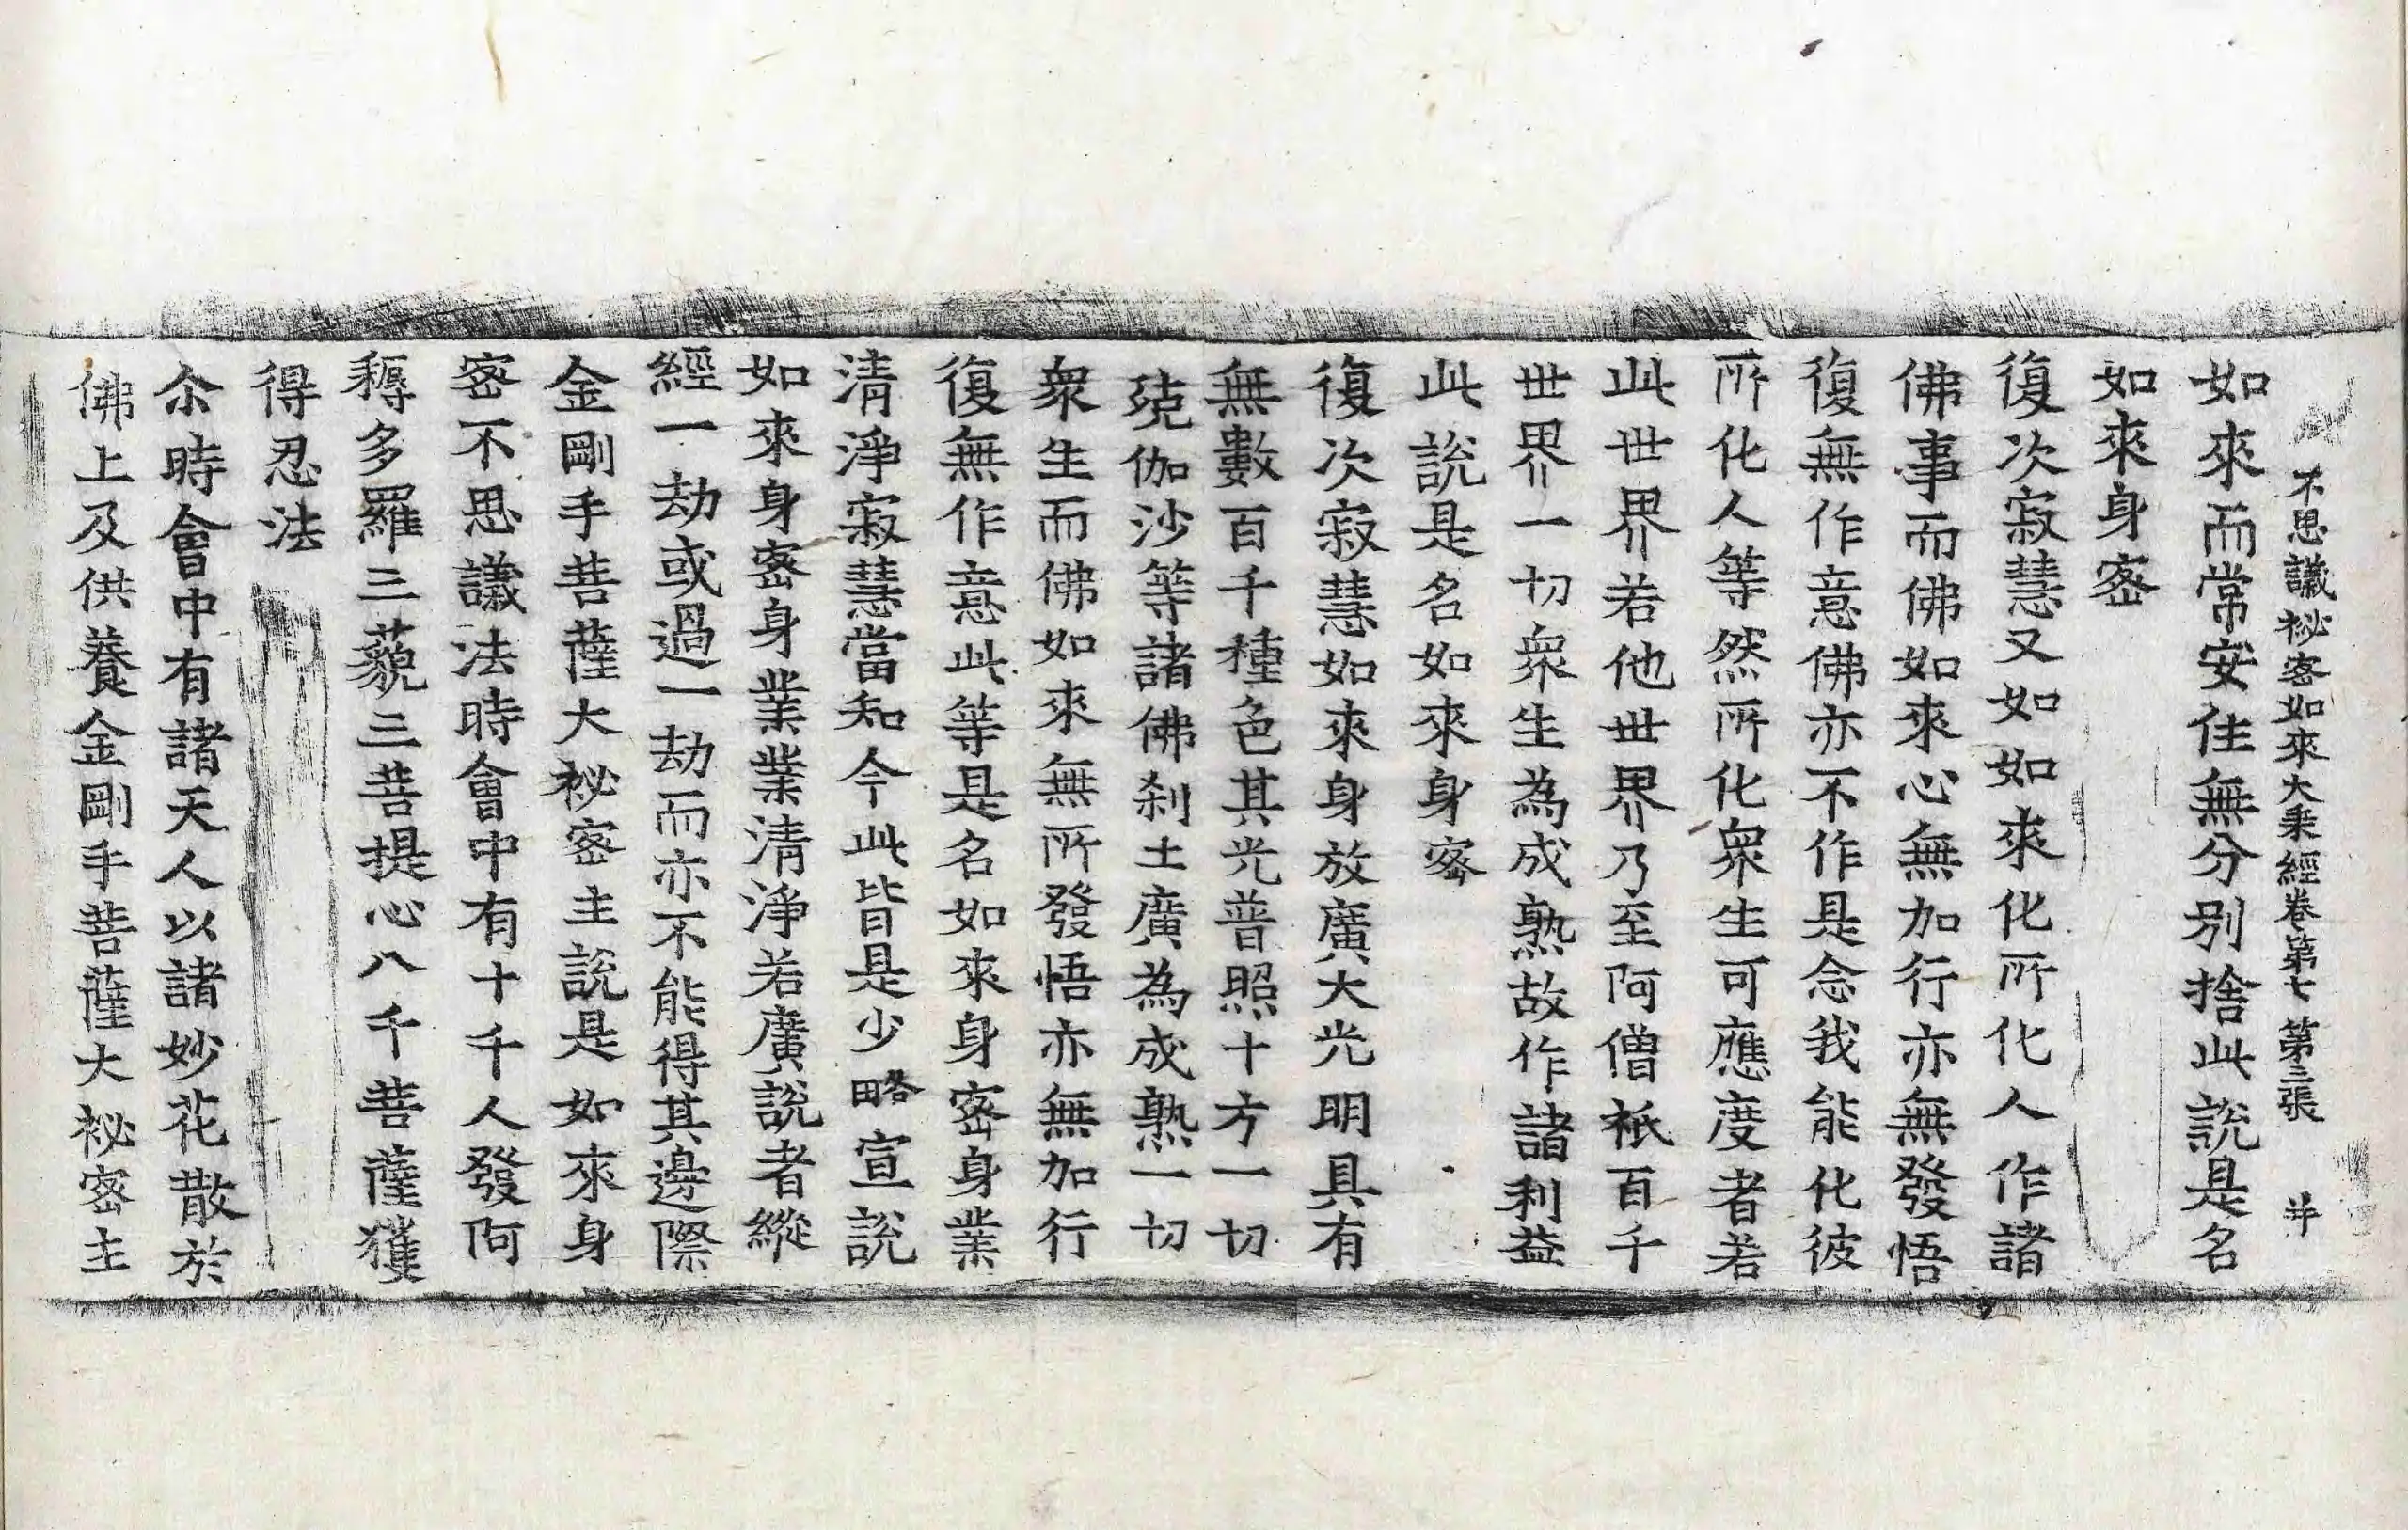 不思議秘密如來大乘經卷第七 第三張 羊
如來而常安住無分別捨此說是名
如來身密
復次寂慧又如如來化所化人作諸
佛事而佛如來心無加行亦無發悟
復無作意佛亦不作是念我能化彼
所化人等然所化衆生可應度者若
此世界若他世界乃至阿僧祇百千
世界一切衆生為成熟故作諸利益
此說是名如來身密
復次寂慧如來身放廣大光明具有
無數百千種色其光普照十方一切
殑伽沙等諸佛刹土廣為成熟一切
衆生而佛如來無所發悟亦無加行
復無作意此等是名如來身密身業
清淨寂慧當知今此皆是少略宣說
如來身密身業業清淨若廣說者縱
經一劫或過一劫而亦不能得其邊際
金剛手菩薩大祕密主說是如來身
密不思議法時會中有十千人發阿
耨多羅三藐三菩提心八千菩薩獲
得忍法
尒時會中有諸天人以諸妙花散於
佛上及供養金剛手菩薩大祕密主